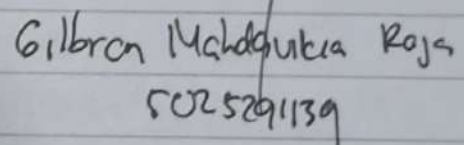 Gilbran Mahdqukia Raja
5025291139